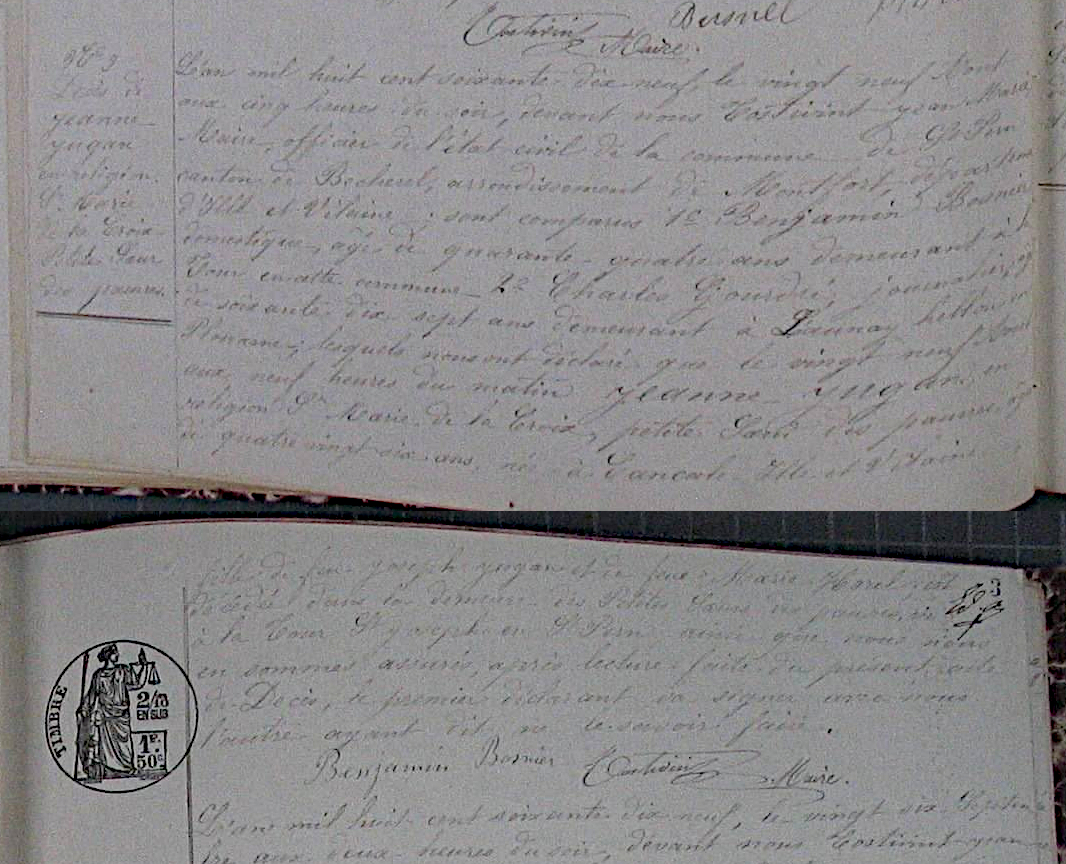 Besnel
Costivint Maire.
N° 9
Décès de
jeanne
jugan
en religion
Sr Marie
de la Croix
Petite Sœur
des pauvres.
L'an mil huit cent soixante dix neuf, le vingt neuf Aout
aux cinq heures du soir, devant nous Costivint jean Marie
Maire, officier de l'état civil de la commune de St Pern
canton de Becherel, arrondissement de Montfort, département
d'Ille et Vilaine; sont comparus 1° Benjamin Bosnier
domestique, agé de quarante quatre ans demeurant à la
Tour en cette commune 2° Charles Gourdré, journalier, agé
de soixante dix sept ans demeurant à Launay hellou en
Plouasne; lesquels nous ont déclaré que le vingt neuf Aout
aux neuf heures du matin jeanne jugan en
religion Sr Marie de la Croix, petite Sœur des pauvres, agée
de quatre vingt six ans, née à Cancale Ille et Vilaine
3
fille de feu joseph jugan et de feue Marie Horel est
décédée dans la demeure des Petites Sœurs des pauvres,
à la Tour St joseph en St Pern ainsi que nous nous
en sommes assurés, après lecture faite du présent acte
de Décès, le premier déclarant va signer avec nous
l'autre ayant dit ne le savoir faire.
TIMBRE
2/10
EN SUS
1F.
50c
Benjamin Bosnier Costivint Maire.
L'an mil huit cent soixante dix neuf, le vingt six Septem
bre aux deux heures du soir, devant nous Costivint jean